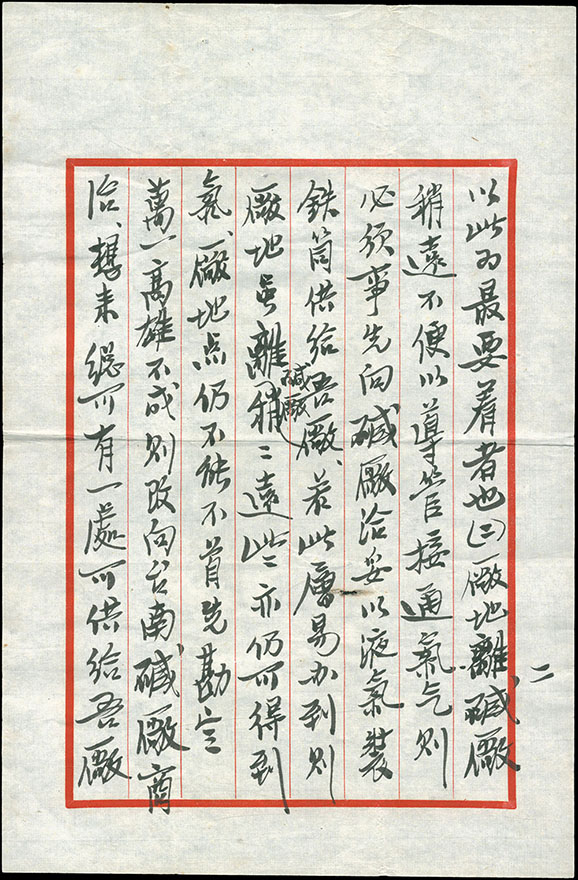 以此为最要着者也(三)廠地離碱廠
稍遠不便以導管接通氯气则
必须事先向碱廠洽妥以液氯裝
鉄筒供给吾廠、若此層易办到则
廠地虽離碱廠稍二遠些二亦仍可得到
氯、廠地点仍不能不首先勘定
萬一高雄不成则改向台南碱廠商
洽、想来總可有一處可供给吾廠
二